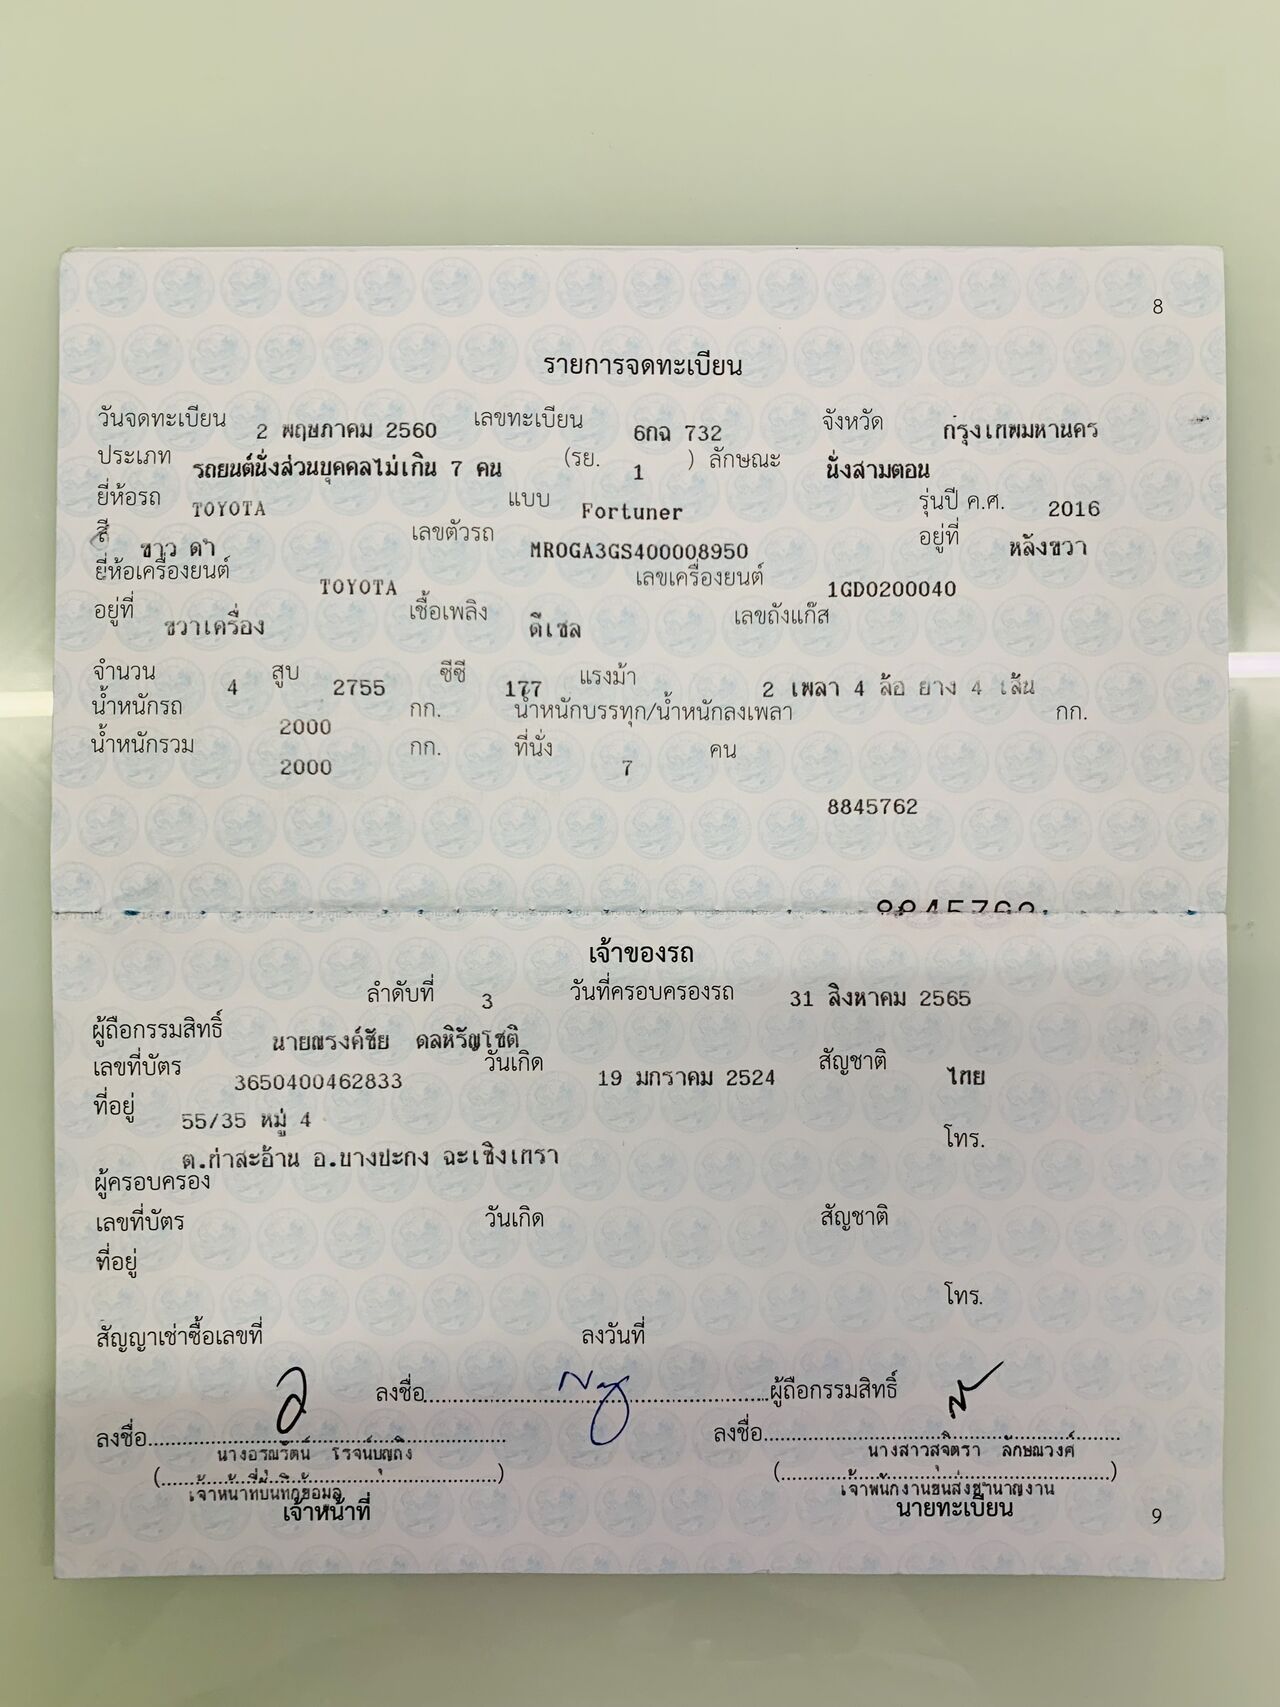 8
รายการจดทะเบียน
วันจดทะเบียน 2 พฤษภาคม 2560 เลขทะเบียน 6กฉ 732 จังหวัด กรุงเทพมหานคร
ประเภท รถยนต์นั่งส่วนบุคคลไม่เกิน 7 คน (รย. 1 ) ลักษณะ นั่งสามตอน
ยี่ห้อรถ TOYOTA แบบ Fortuner รุ่นปี ค.ศ. 2016
สี ขาว ดำ เลขตัวรถ MR0GA3GS400008950 อยู่ที่ หลังขวา
ยี่ห้อเครื่องยนต์ TOYOTA เลขเครื่องยนต์ 1GD0200040
อยู่ที่ ขวาเครื่อง เชื้อเพลิง ดีเซล เลขถังแก๊ส
จำนวน 4 สูบ 2755 ซีซี 177 แรงม้า 2 เพลา 4 ล้อ ยาง 4 เส้น
น้ำหนักรถ 2000 กก. น้ำหนักบรรทุก/น้ำหนักลงเพลา กก.
น้ำหนักรวม 2000 กก. ที่นั่ง 7 คน
8845762
8845762
เจ้าของรถ
ลำดับที่ 3 วันที่ครอบครองรถ 31 สิงหาคม 2565
ผู้ถือกรรมสิทธิ์ นายณรงค์ชัย ดลหิรัญโชติ
เลขที่บัตร 3650400462833 วันเกิด 19 มกราคม 2524 สัญชาติ ไทย
ที่อยู่ 55/35 หมู่ 4
ต.ท่าสะอ้าน อ.บางปะกง ฉะเชิงเทรา โทร.
ผู้ครอบครอง
เลขที่บัตร วันเกิด สัญชาติ
ที่อยู่
โทร.
สัญญาเช่าซื้อเลขที่ ลงวันที่
ลงชื่อ ผู้ถือกรรมสิทธิ์
ลงชื่อ ลงชื่อ
นางอรุณรัตน์ โรจน์บุญถึง นางสาวสุจิตรา ลักษณวงศ์
( ) ( )
เจ้าหน้าที่ผู้บันทึกข้อมูล เจ้าพนักงานขนส่งชำนาญงาน
เจ้าหน้าที่ นายทะเบียน
9